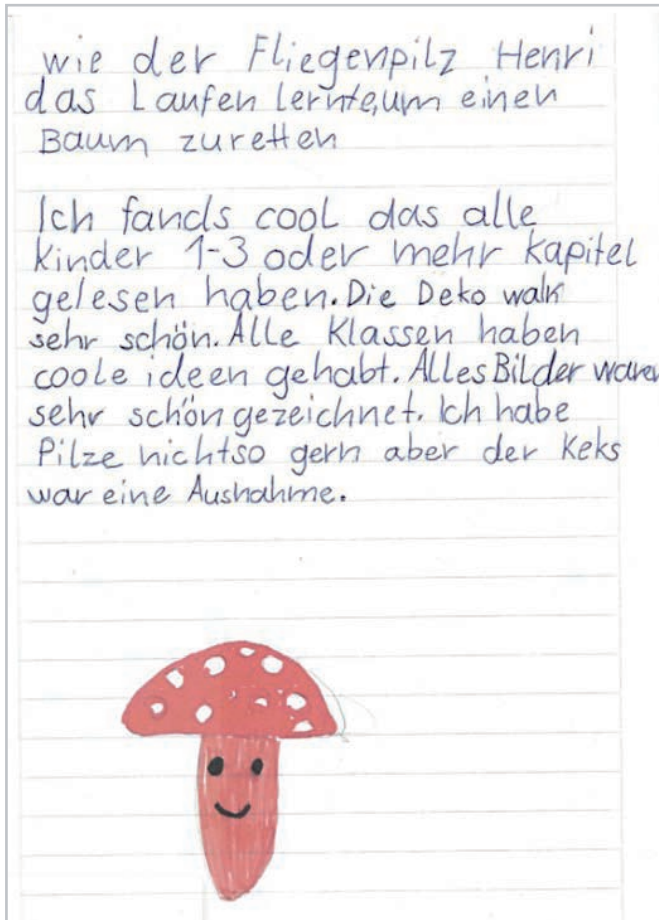 wie der Fliegenpilz Henri
das Laufen lernte,um einen
Baum zuretten
Ich fands cool das alle
kinder 1-3 oder mehr kapitel
gelesen haben. Die Deko
sehr schön. Alle Klassen haben
coole ideen gehabt. Alles Bilder waren
sehr schön gezeichnet. Ich habe
Pilze nichtso gern aber der Keks
war eine Ausnahme.